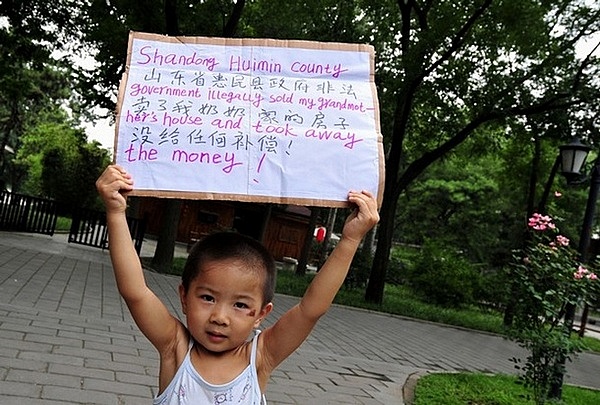 Shandong Huimin County
山东省惠民县政府非法
government illegally sold my grandmot-
卖了我奶奶家的房子
her's house and took away
没给任何补偿！
the money!